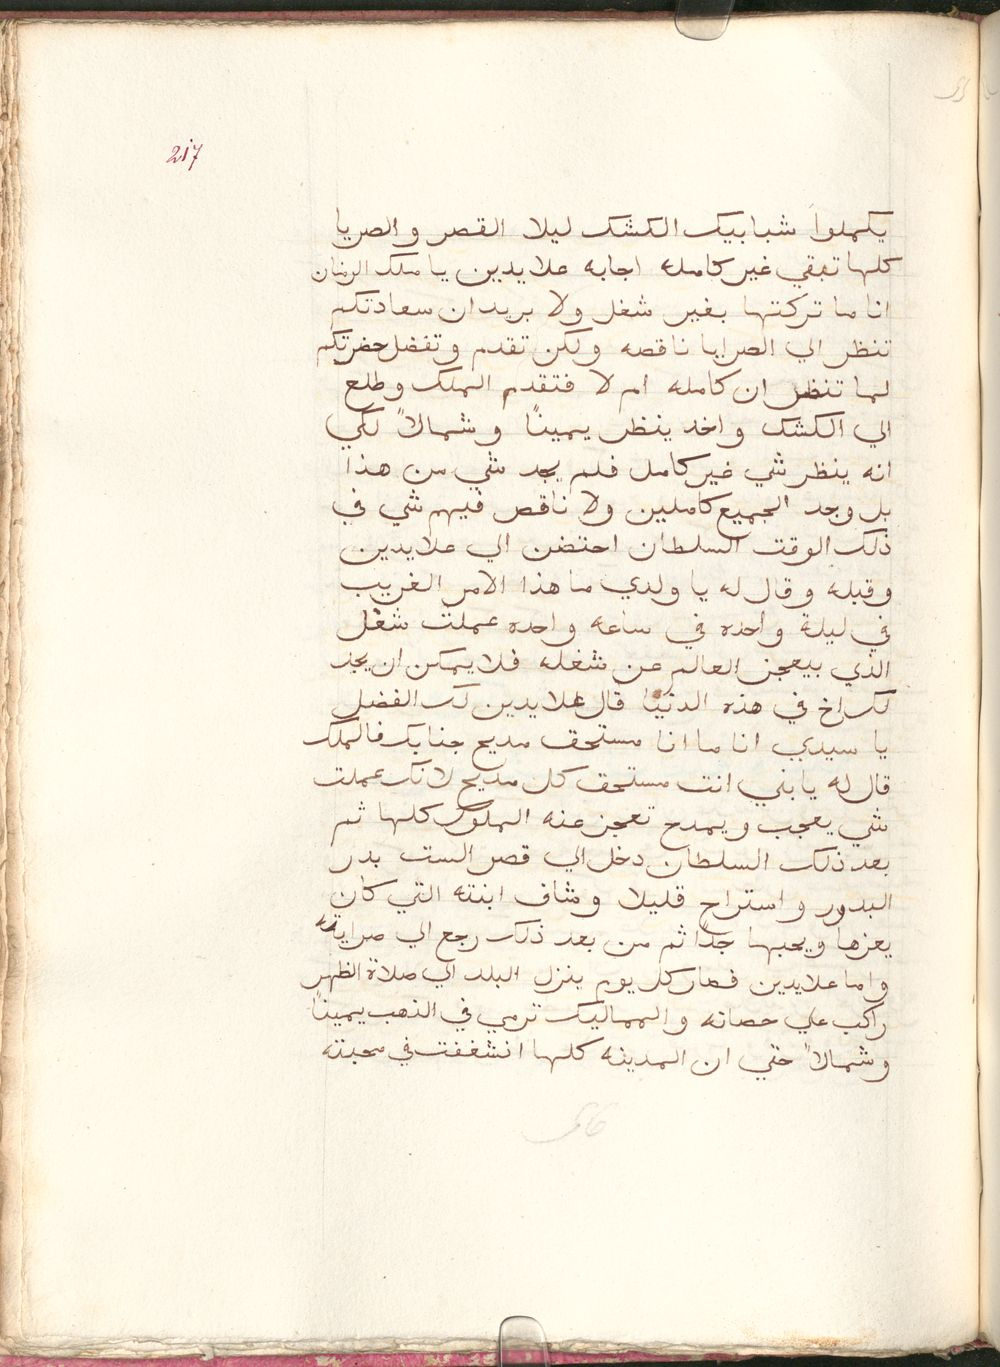 217
يكملوا شبابيك الكشك ليلا القصر والصريا
كلها تبقي غير كامله اجابه علايدين يا ملك الزمان
انا ما تركتها بغير شغل ولا بريد ان سعادتكم
تنظر الي الصرايا ناقصه ولكن تقدم وتفضل حضرتكم
لما تنظر ان كامله ام لا فتقدم الملك وطلع
الي الكشك واخد ينظر يميناً وشمالاً لكي
انه ينظر شي غير كامل فلم يجد شي من هذا
بل وجد الجميع كاملين ولا ناقص فيهم شي في
ذلك الوقت السلطان احتضن الي علايدين
وقبله وقال له يا ولدي ما هذا الامر الغريب
في ليلة واحده في ساعه واحده عملت شغل
الذي بيعجز العالم عن شغله فلا يمكن ان يجد
لك اخ في هذه الدنيا قال علايدين لك الفضل
يا سيدي انا ما انا مستحق مديح جنابك فالملك
قال له يا بني انت مستحق كل مديح لانك عملت
شي يعجب ويمدح تعجز عنه الملوك كلها ثم
بعد ذلك السلطان دخل الي قصر الست بدر
البدور واستراح قليلا وشاف ابنته التي كان
يعزها ويحبها جداً ثم من بعد ذلك رجع الي صرايته
واما علايدين فصار كل يوم ينزل البلد الي صلاة الظهر
راكب علي حصانه والمماليك ترمي في الذهب يميناً
وشمالاً حتي ان المدينه كلها انشغفت في محبته